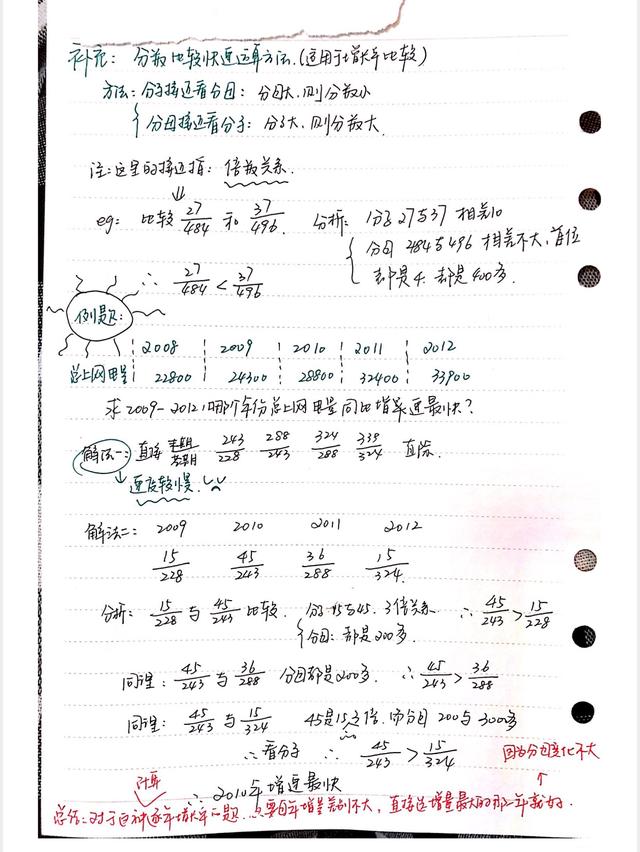 补充: 分数比较快速运算方法.(适用于增长率比较)
方法: 分子接近看分母: 分母大,则分数小
分母接近看分子: 分子大,则分数大.
注:这里的接近指: 倍数关系.
eg: 比较 27/484 和 37/496. 分析: 分子27与37 相差10
分母 484与496 相差不大,首位
都是4. 都是400多.
∴ 27/484 < 37/496
例题:
2008 2009 2010 2011 2012
总上网电量 22800 24300 28800 32400 33900
求2009-2012,哪个年份总上网电量同比增速最快?
解法一: 直接 243/228 288/243 324/288 339/324 直除.
速度较慢.
解法二: 2009 2010 2011 2012
15/228 45/243 36/288 15/324
分析: 15/228 与 45/243 比较. 分子15与45. 3倍关系 ∴ 45/243 > 15/228
分母: 都是200多.
同理: 45/243 与 36/288 分母都是200多. ∴ 45/243 > 36/288
同理: 45/243 与 15/324 45是15之倍. 而分母 200与300多
∴看分子 ∴ 45/243 > 15/324
因为分母变化不大
∴ 2010年增速最快
计算
总结:对于这种逐年增长率问题. 只要每年增量差别不大, 直接选增量最大的那一年就好.